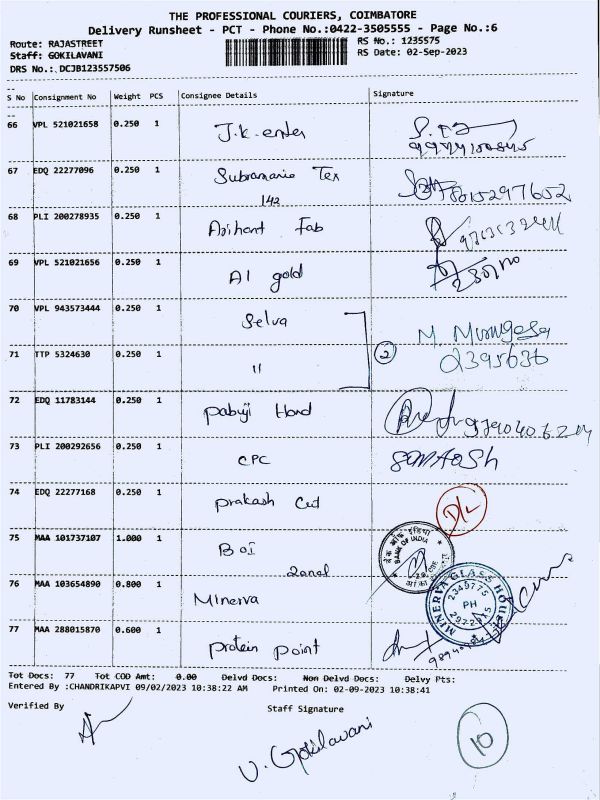 THE PROFESSIONAL COURIERS, COIMBATORE
Delivery Runsheet - PCT - Phone No.:0422-3505555 - Page No.:6
Route: RAJASTREET
RS No.: 1235575
Staff: GOKILAVANI
RS Date: 02-Sep-2023
DRS No.: DCJB123557506
S No Consignment No Weight PCS Consignee Details Signature
66 VPL 521021658 0.250 1 J.K. enter
67 EDQ 22277096 0.250 1 Subramania Tex
142
68 PLI 200278935 0.250 1 Arihant Fab
69 VPL 521021656 0.250 1 AI gold
70 VPL 943573444 0.250 1 Selva M. Murugesa
71 TTP 5324630 0.250 1 11 2 2395636
72 EDQ 11783144 0.250 1 pabuji Hand
73 PLI 200292656 0.250 1 CPC SANTOSH
74 EDQ 22277168 0.250 1 prakash Cut D/L
75 MAA 101737107 1.000 1 BOI
BANK OF INDIA
Zonal
76 MAA 103654890 0.800 1 Minerva
MINERVA GLASS HOUSE
2349775
PH
2972915
77 MAA 288015870 0.600 1 protein point
Tot Docs: 77 Tot COD Amt: 0.00 Delvd Docs: Non Delvd Docs: Delvy Pts:
Entered By :CHANDRIKAPVI 09/02/2023 10:38:22 AM Printed On: 02-09-2023 10:38:41
Verified By Staff Signature
V. Gokilavani
10